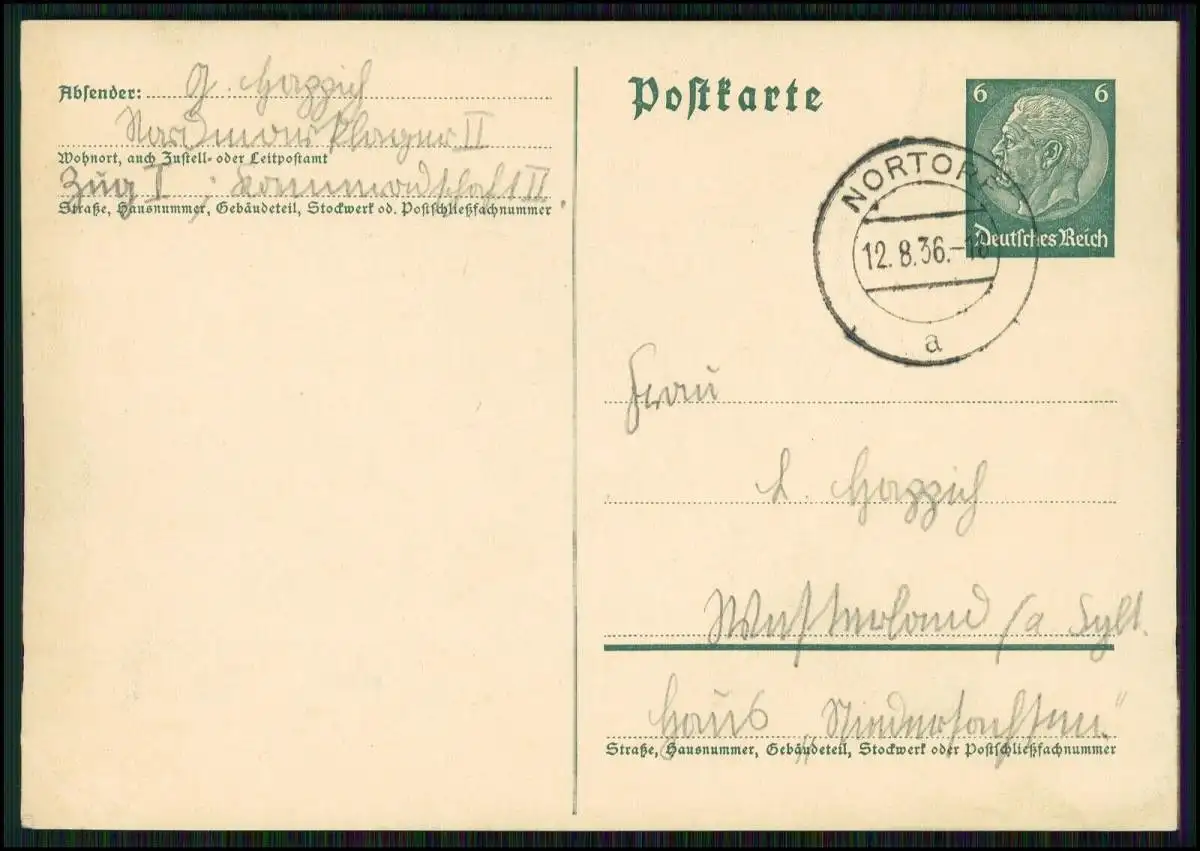 Postkarte
Absender: G. Happich
Nordmarklager II
Wohnort, auch Zustell- oder Leitpostamt
Zug I ; Kammeradschaft II.
Straße, Hausnummer, Gebäudeteil, Stockwerk od. Postschließfachnummer
6 6
Deutsches Reich
NORTORF
12.8.36.-18
a
Frau
L. Happich
Westerland /a Sylt.
Haus „Niedersachsen."
Straße, Hausnummer, Gebäudeteil, Stockwerk oder Postschließfachnummer